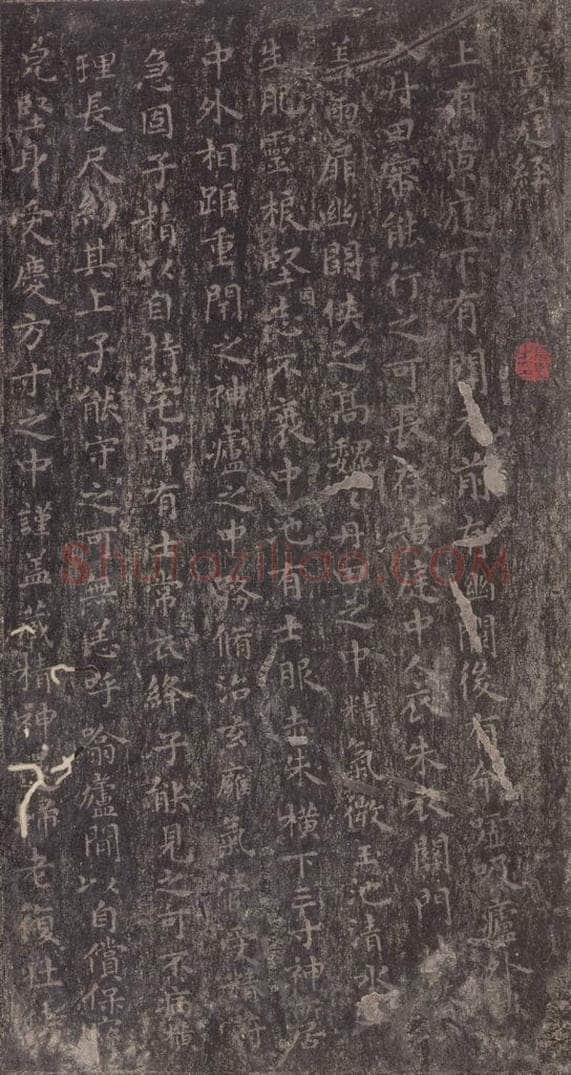 黄庭經
上有黄庭下有關前有幽闕後有命噓吸廬外
入丹田審能行之可長存黄庭中人衣朱衣關門
兩扉幽闕俠之高魏丹田之中精氣微玉池清水
生肥靈根堅志不衰中池有士服赤朱橫下三寸神居
中外相距重閉之神廬之中務脩治玄廱氣管受精符
急固子精以自持宅中有士常衣絳子能見之可不病橫
理長尺約其上子能守之可無恙呼噏廬間以自償保
完堅身受慶方寸之中謹盖藏精神歸老復壯
Shufaziliao.COM